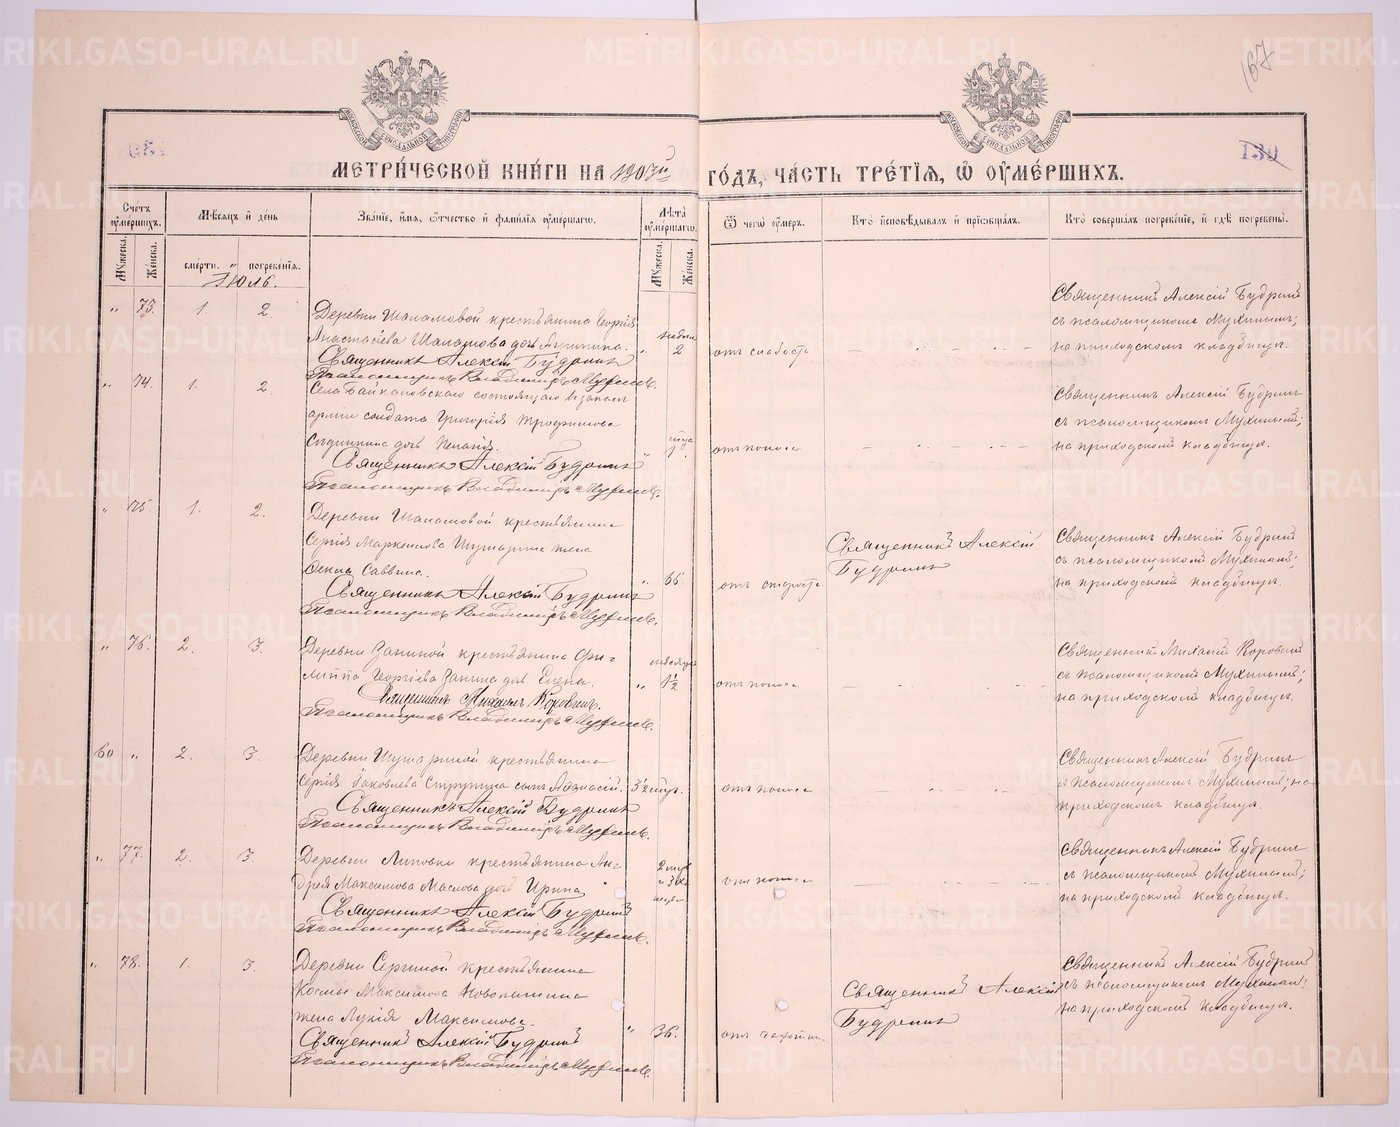 METRIKI.GASO-URAL.RU
167
130
МЕТРИ́ЧЕСКОЙ КНИ́ГИ НА 1907й ГО́ДЪ, ЧА́СТЬ ТРЕ́ТІѦ, Ѽ ОУМЕ́РШИХЪ.
Счетъ оумершихъ.
Мѣсяцъ и день
Званіе, имя, отчество и фамилія оумершагω.
Лѣта оумершагω.
Ѿ чегω оумеръ.
Кто исповѣдывалъ и пріобщалъ.
Кто совершалъ погребеніе, и гдѣ погребены.
Мужеска.
Женска.
смерти.
погребенія.
Мужеска.
Женска.
Іюль.
" 73. 1. 2.
Деревни Шаламовой крестьянина Георгія
Анастасіева Шаламова дочь Агрипина.
Священникъ Алексій Будринъ
Псаломщикъ Владиміръ Мухинъ.
" недѣли 2
отъ слабости
Священникъ Алексій Будринъ
съ псаломщикомъ Мухинымъ;
на приходскомъ кладбищѣ.
" 74. 1. 2.
Села Байкаловскаго состоящаго въ запасѣ
арміи солдата Григорія Трофимова
дочь Пелагія.
Священникъ Алексій Будринъ
Псаломщикъ Владиміръ Мухинъ.
" года 1.
отъ поноса
Священникъ Алексій Будринъ
съ псаломщикомъ Мухинымъ;
на приходскомъ кладбищѣ.
" 75. 1. 2.
Деревни Шаламовой крестьянина
Сергія Маркеллова Шушарина жена
Саввина.
Священникъ Алексій Будринъ
Псаломщикъ Владиміръ Мухинъ.
" 66.
отъ старости
Священникъ Алексій
Будринъ
Священникъ Алексій Будринъ
съ псаломщикомъ Мухинымъ;
на приходскомъ кладбищѣ.
" 76. 2. 3.
Деревни Заниной крестьянина Фи-
липпа Георгіева Занина дочь Елена.
Священникъ Михаилъ Коровинъ.
Псаломщикъ Владиміръ Мухинъ.
" мѣсяца 1½
отъ поноса
Священникъ Михаилъ Коровинъ
съ псаломщикомъ Мухинымъ;
на приходскомъ кладбищѣ.
60 " 2. 3.
Деревни Шушариной крестьянина
Сергія Іаковлева Струнина сынъ Афанасій.
Священникъ Алексій Будринъ
Псаломщикъ Владиміръ Мухинъ.
3½
отъ поноса
Священникъ Алексій Будринъ
съ псаломщикомъ Мухинымъ; на
приходскомъ кладбищѣ.
" 77. 2. 3.
Деревни Липовки крестьянина Ан-
дрея Максимова Маслова дочь Ирина.
Священникъ Алексій Будринъ
Псаломщикъ Владиміръ Мухинъ.
отъ поноса
Священникъ Алексій Будринъ
съ псаломщикомъ Мухинымъ;
на приходскомъ кладбищѣ.
" 78. 1. 3.
Деревни Сергиной крестьянина
Космы Максимова Новопашина
жена Лукія Максимова.
Священникъ Алексій Будринъ
Псаломщикъ Владиміръ Мухинъ.
" 36.
отъ чахотки.
Священникъ Алексій
Будринъ
Священникъ Алексій Будринъ
съ псаломщикомъ Мухинымъ;
на приходскомъ кладбищѣ.